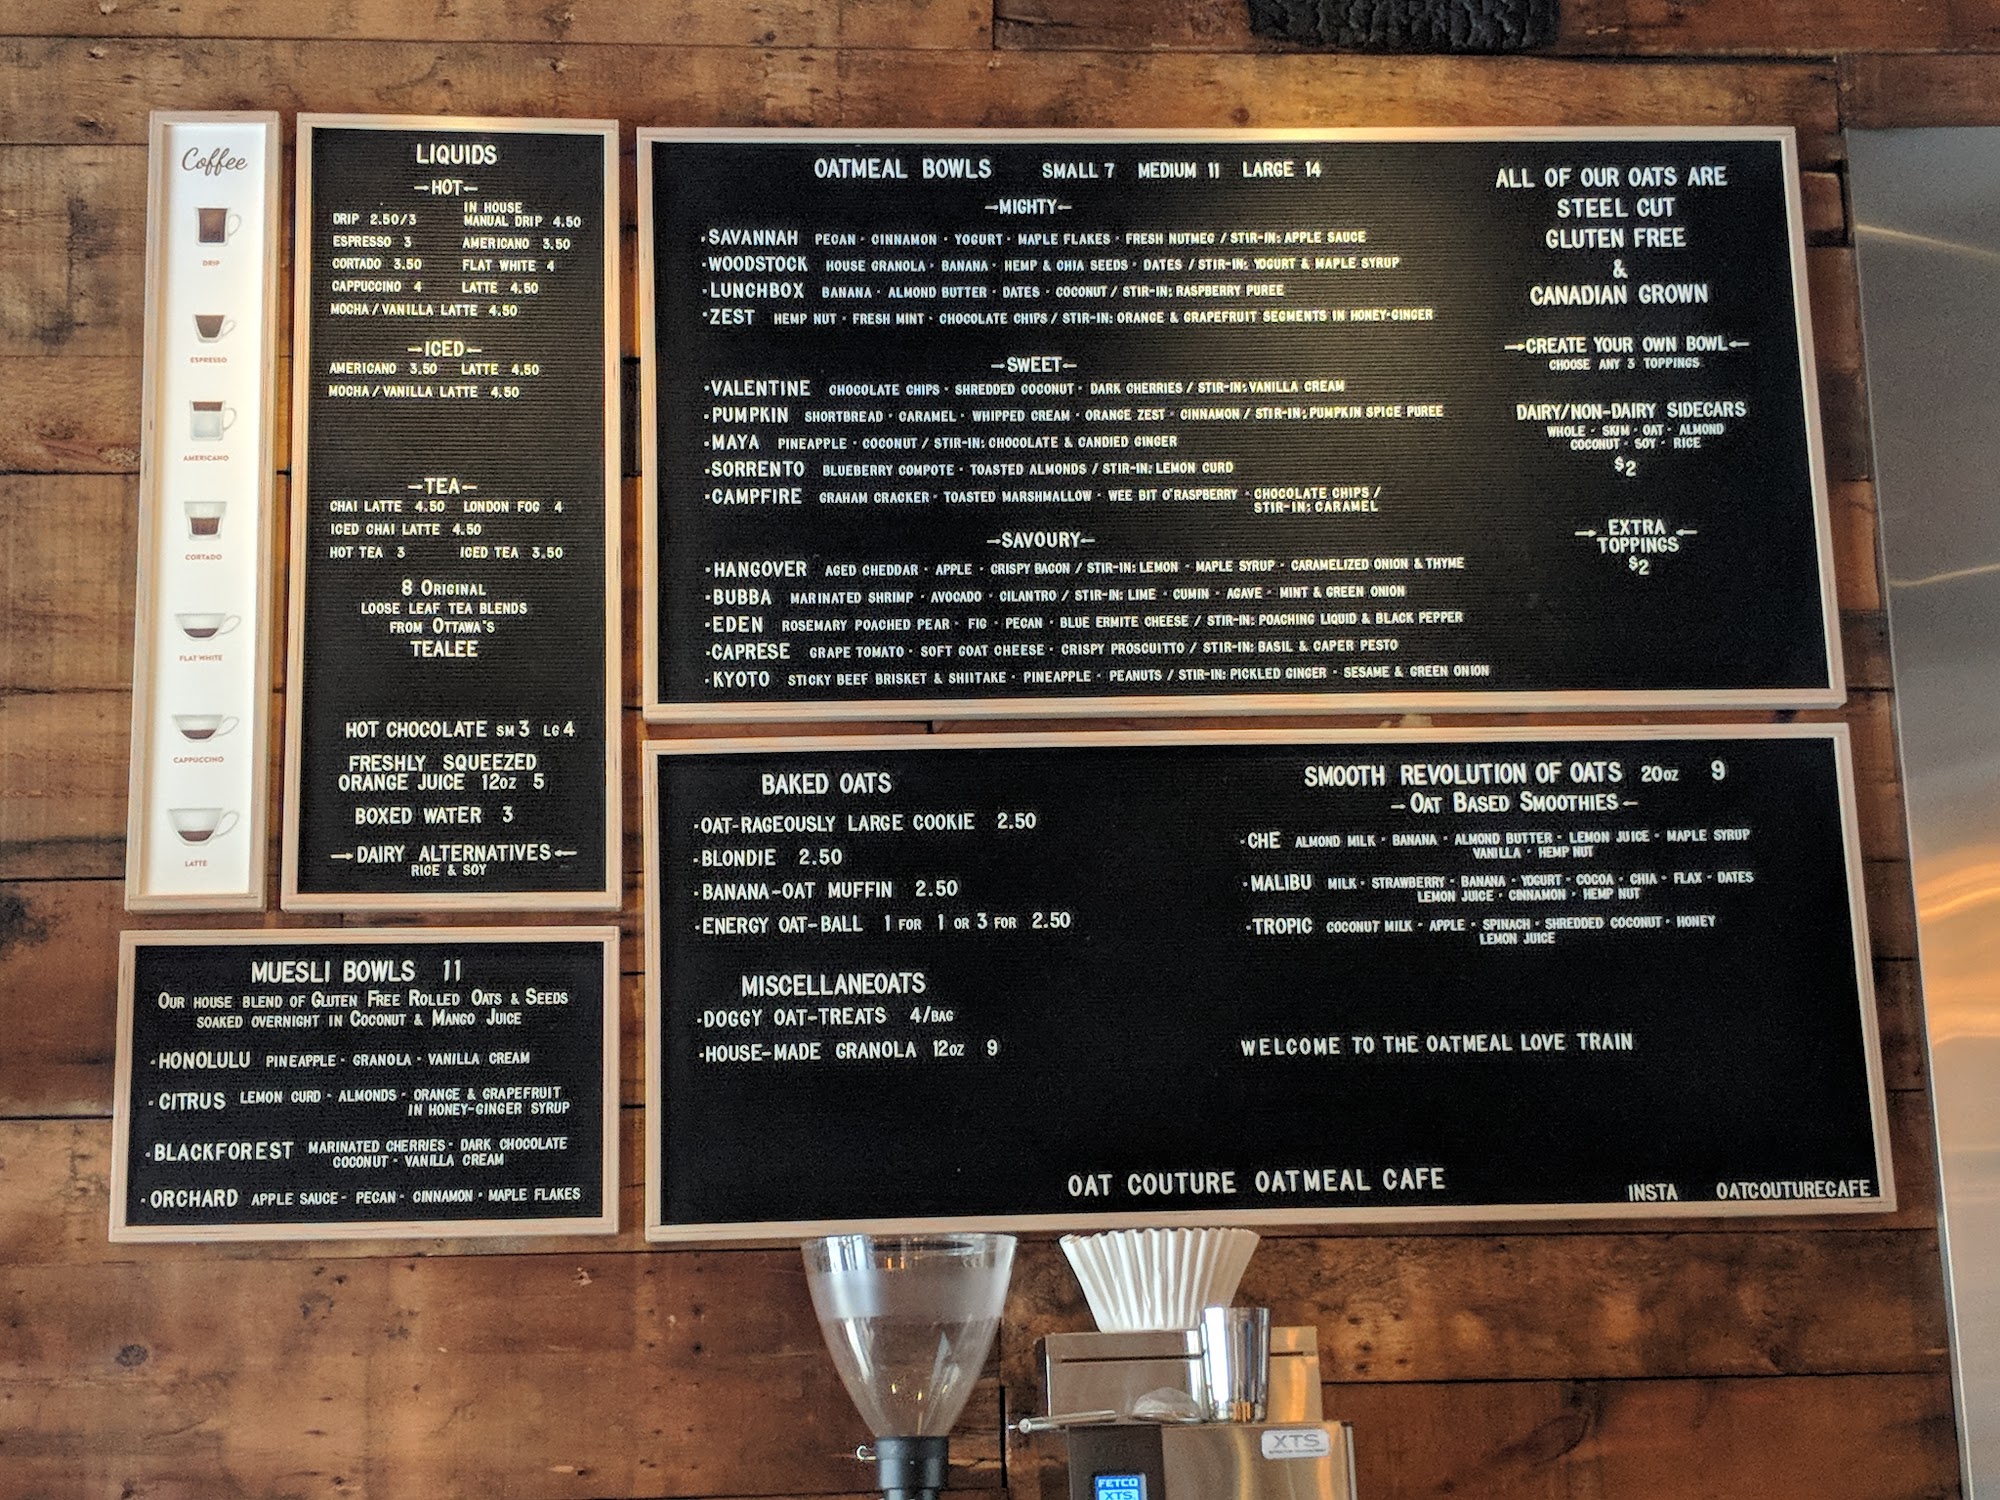 Coffee
DRIP
ESPRESSO
AMERICANO
CORTADO
FLAT WHITE
CAPPUCCINO
LATTE
LIQUIDS
HOT
DRIP 2.50/3
IN HOUSE
MANUAL DRIP 4.50
ESPRESSO 3 AMERICANO 3.50
CORTADO 3.50 FLAT WHITE 4
CAPPUCCINO 4 LATTE 4.50
MOCHA/VANILLA LATTE 4.50
ICED
AMERICANO 3.50 LATTE 4.50
MOCHA/VANILLA LATTE 4.50
TEA
CHAI LATTE 4.50 LONDON FOG 4
ICED CHAI LATTE 4.50
HOT TEA 3 ICED TEA 3.50
8 ORIGINAL
LOOSE LEAF TEA BLENDS
FROM OTTAWA'S
TEALEE
HOT CHOCOLATE SM 3 LG 4
FRESHLY SQUEEZED
ORANGE JUICE 12OZ 5
BOXED WATER 3
DAIRY ALTERNATIVES
RICE & SOY
MUESLI BOWLS 11
OUR HOUSE BLEND OF GLUTEN FREE ROLLED OATS & SEEDS
SOAKED OVERNIGHT IN COCONUT & MANGO JUICE
·HONOLULU PINEAPPLE · GRANOLA · VANILLA CREAM
·CITRUS LEMON CURD · ALMONDS · ORANGE & GRAPEFRUIT
IN HONEY-GINGER SYRUP
·BLACKFOREST MARINATED CHERRIES · DARK CHOCOLATE
COCONUT · VANILLA CREAM
·ORCHARD APPLE SAUCE · PECAN · CINNAMON · MAPLE FLAKES
OATMEAL BOWLS SMALL 7 MEDIUM 11 LARGE 14
MIGHTY
·SAVANNAH PECAN · CINNAMON · YOGURT · MAPLE FLAKES · FRESH NUTMEG / STIR-IN: APPLE SAUCE
·WOODSTOCK HOUSE GRANOLA · BANANA · HEMP & CHIA SEEDS · DATES / STIR-IN: YOGURT & MAPLE SYRUP
·LUNCHBOX BANANA · ALMOND BUTTER · DATES · COCONUT / STIR-IN: RASPBERRY PUREE
·ZEST HEMP NUT · FRESH MINT · CHOCOLATE CHIPS / STIR-IN: ORANGE & GRAPEFRUIT SEGMENTS IN HONEY-GINGER
SWEET
·VALENTINE CHOCOLATE CHIPS · SHREDDED COCONUT · DARK CHERRIES / STIR-IN: VANILLA CREAM
·PUMPKIN SHORTBREAD · CARAMEL · WHIPPED CREAM · ORANGE ZEST · CINNAMON / STIR-IN: PUMPKIN SPICE PUREE
·MAYA PINEAPPLE · COCONUT / STIR-IN: CHOCOLATE & CANDIED GINGER
·SORRENTO BLUEBERRY COMPOTE · TOASTED ALMONDS / STIR-IN: LEMON CURD
·CAMPFIRE GRAHAM CRACKER · TOASTED MARSHMALLOW · WEE BIT O'RASPBERRY · CHOCOLATE CHIPS /
STIR-IN: CARAMEL
SAVOURY
·HANGOVER AGED CHEDDAR · APPLE · CRISPY BACON / STIR-IN: LEMON · MAPLE SYRUP · CARAMELIZED ONION & THYME
·BUBBA MARINATED SHRIMP · AVOCADO · CILANTRO / STIR-IN: LIME · CUMIN · AGAVE · MINT & GREEN ONION
·EDEN ROSEMARY POACHED PEAR · FIG · PECAN · BLUE ERMITE CHEESE / STIR-IN: POACHING LIQUID & BLACK PEPPER
·CAPRESE GRAPE TOMATO · SOFT GOAT CHEESE · CRISPY PROSCUITTO / STIR-IN: BASIL & CAPER PESTO
·KYOTO STICKY BEEF BRISKET & SHIITAKE · PINEAPPLE · PEANUTS / STIR-IN: PICKLED GINGER · SESAME & GREEN ONION
ALL OF OUR OATS ARE
STEEL CUT
GLUTEN FREE
&
CANADIAN GROWN
CREATE YOUR OWN BOWL
CHOOSE ANY 3 TOPPINGS
DAIRY/NON-DAIRY SIDECARS
WHOLE · SKIM · OAT · ALMOND
COCONUT · SOY · RICE
$2
EXTRA
TOPPINGS
$2
BAKED OATS
·OAT-RAGEOUSLY LARGE COOKIE 2.50
·BLONDIE 2.50
·BANANA-OAT MUFFIN 2.50
·ENERGY OAT-BALL 1 FOR 1 OR 3 FOR 2.50
MISCELLANEOATS
·DOGGY OAT-TREATS 4/BAG
·HOUSE-MADE GRANOLA 12OZ 9
SMOOTH REVOLUTION OF OATS 20OZ 9
OAT BASED SMOOTHIES
·CHE ALMOND MILK · BANANA · ALMOND BUTTER · LEMON JUICE · MAPLE SYRUP
VANILLA · HEMP NUT
·MALIBU MILK · STRAWBERRY · BANANA · YOGURT · COCOA · CHIA · FLAX · DATES
LEMON JUICE · CINNAMON · HEMP NUT
·TROPIC COCONUT MILK · APPLE · SPINACH · SHREDDED COCONUT · HONEY
LEMON JUICE
WELCOME TO THE OATMEAL LOVE TRAIN
OAT COUTURE OATMEAL CAFE
INSTA OATCOUTURECAFE
XTS
FETCO
XTS